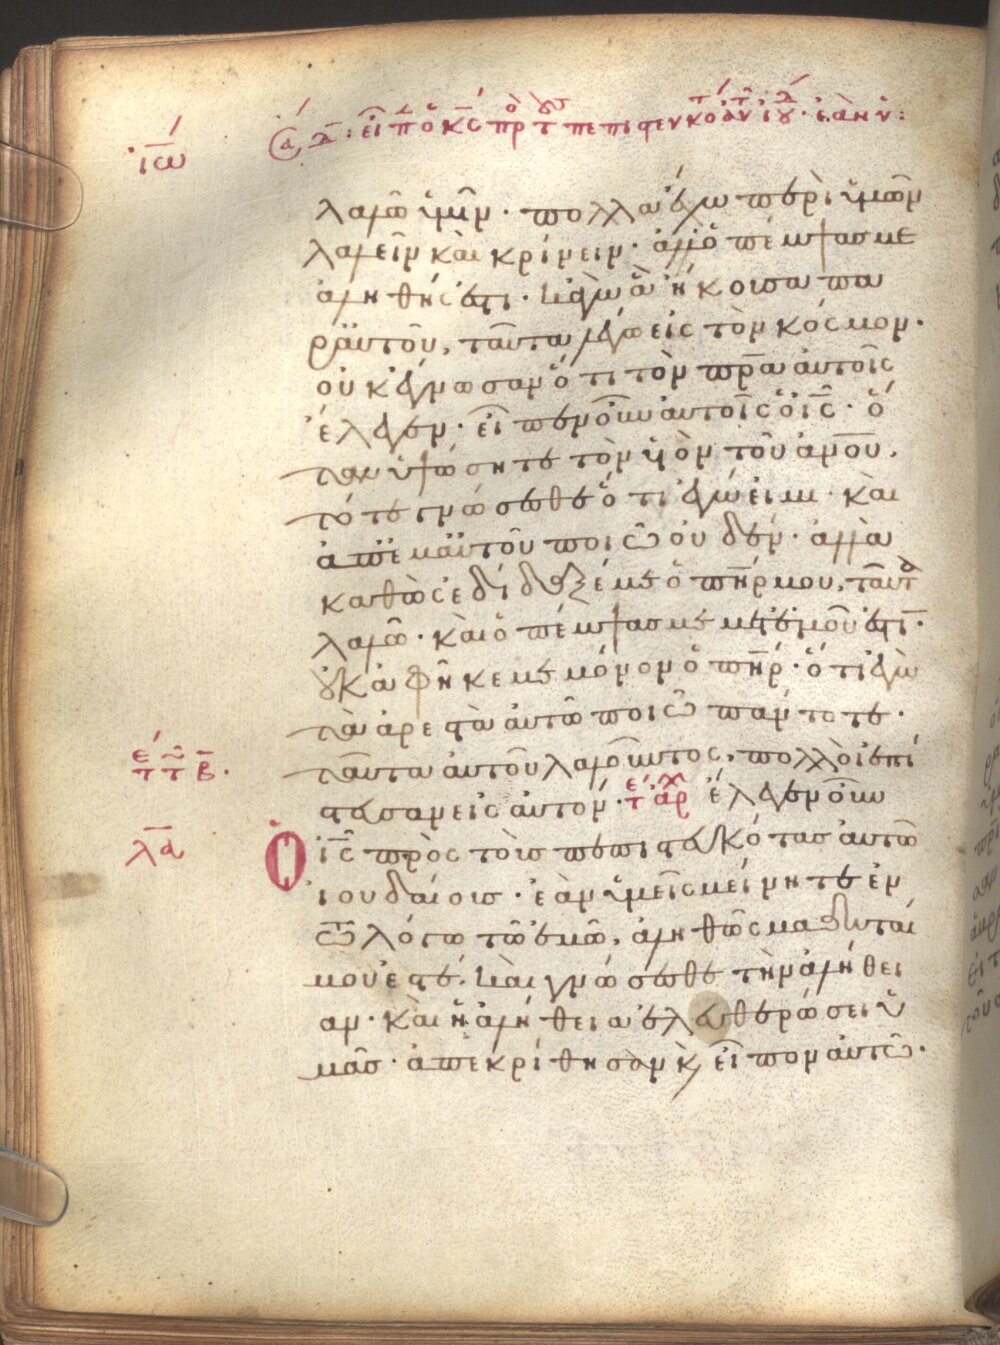 ἰω
εἶπ ὁ κς πρ τ πεπιστευκο αυ ἰου · ἐὰν ὑ :
λαλῶ ὑμῖν · πολλὰ ἔχω περὶ ὑμῶν
λαλεῖν καὶ κρίνειν · ἀλλ ὁ πέμψας με
ἀληθής ἐστι · κἀγὼ ἃ ἤκουσα πα
ρ αὐτοῦ, ταῦτα λέγω εἰς τὸν κόσμον ·
οὐκ ἔγνωσαν ὅτι τὸν πρα αὐτοῖς
ἔλεγεν · εἶπεν οὖν αὐτοῖς ὁ ις · ὅ
ταν ὑψώσητε τὸν υἱὸν τοῦ ανου,
τότε γνώσεσθε ὅτι ἐγώ εἰμι · καὶ
ἀπ ἐμαυτοῦ ποιῶ οὐδέν · ἀλλὰ
καθὼς ἐδίδαξέ με ὁ πηρ μου, ταῦτα
λαλῶ · καὶ ὁ πέμψας με μετ ἐμοῦ ἐστι ·
οὐκ ἀφῆκε με μόνον ὁ πηρ · ὅτι ἐγὼ
τὰ ἀρεστὰ αὐτῶ ποιῶ πάντοτε ·
ε τ τ β ·
ταῦτα αὐτοῦ λαλοῦντος, πολλοὶ ἐπί
στευσαν εἰς αὐτόν · τε αρχ ἔλεγεν οὖν
λα
Ὁ ις πρὸς τοὺς πεπιστευκότας αὐτῶ
ἰουδαίους · ἐὰν ὑμεῖς μείνητε ἐν
τῶ λόγω τῶ ἐμῶ, ἀληθῶς μαθηταί
μου ἐστέ · καὶ γνώσεσθε τὴν ἀλήθει
αν · καὶ ἡ ἀλήθεια ἐλευθερώσει ὑ
μᾶς · ἀπεκρίθησαν κ εἶπον αὐτῶ ·